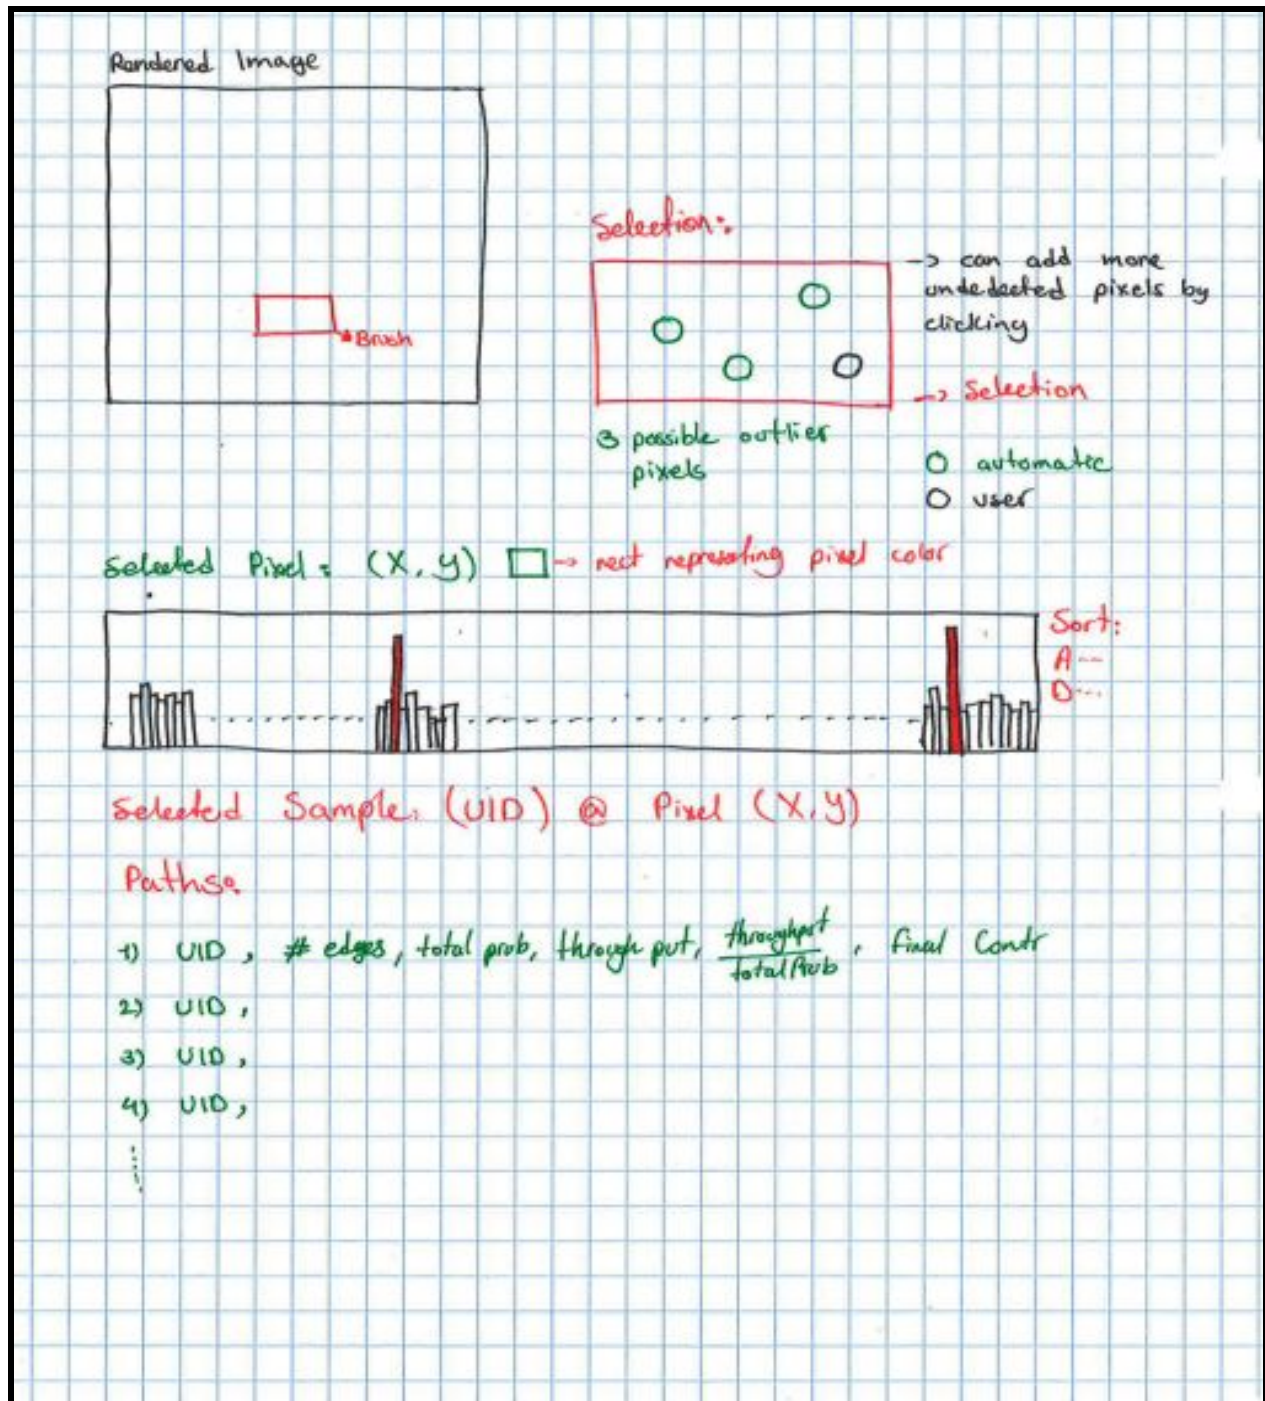 Rendered Image
Brush
Selection:
-> can add more
undedected pixels by
clicking
-> Selection
3 possible outlier
pixels
automatic
user
Selected Pixel: (X, Y) -> rect representing pixel color
Sort:
A--
D--
Selected Sample: (UID) @ Pixel (X,Y)
Paths:
1) UID, # edges, total prob, through put, throughput/totalProb, final Contr
2) UID,
3) UID,
4) UID,